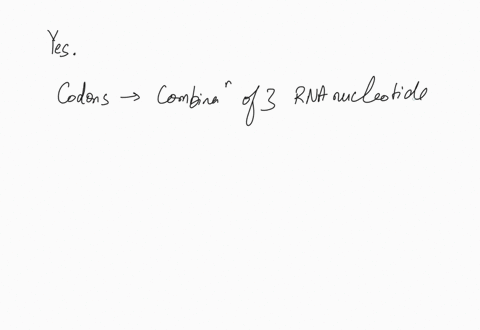 Yes.
Codons → Combinaⁿ of 3 RNA nucleotide